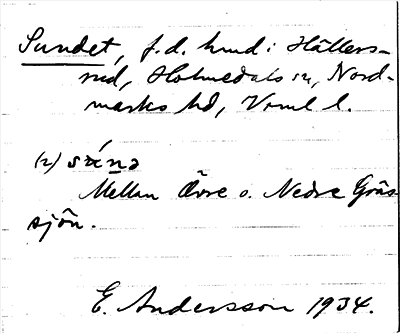 Sundet, f.d. hmd i Hällers-
rud, Holmedals sn, Nord-
marks hd, Vrml l.
(2) súnə
Mellan Övre o. Nedre Gräs
sjön.
E. Andersson 1934.